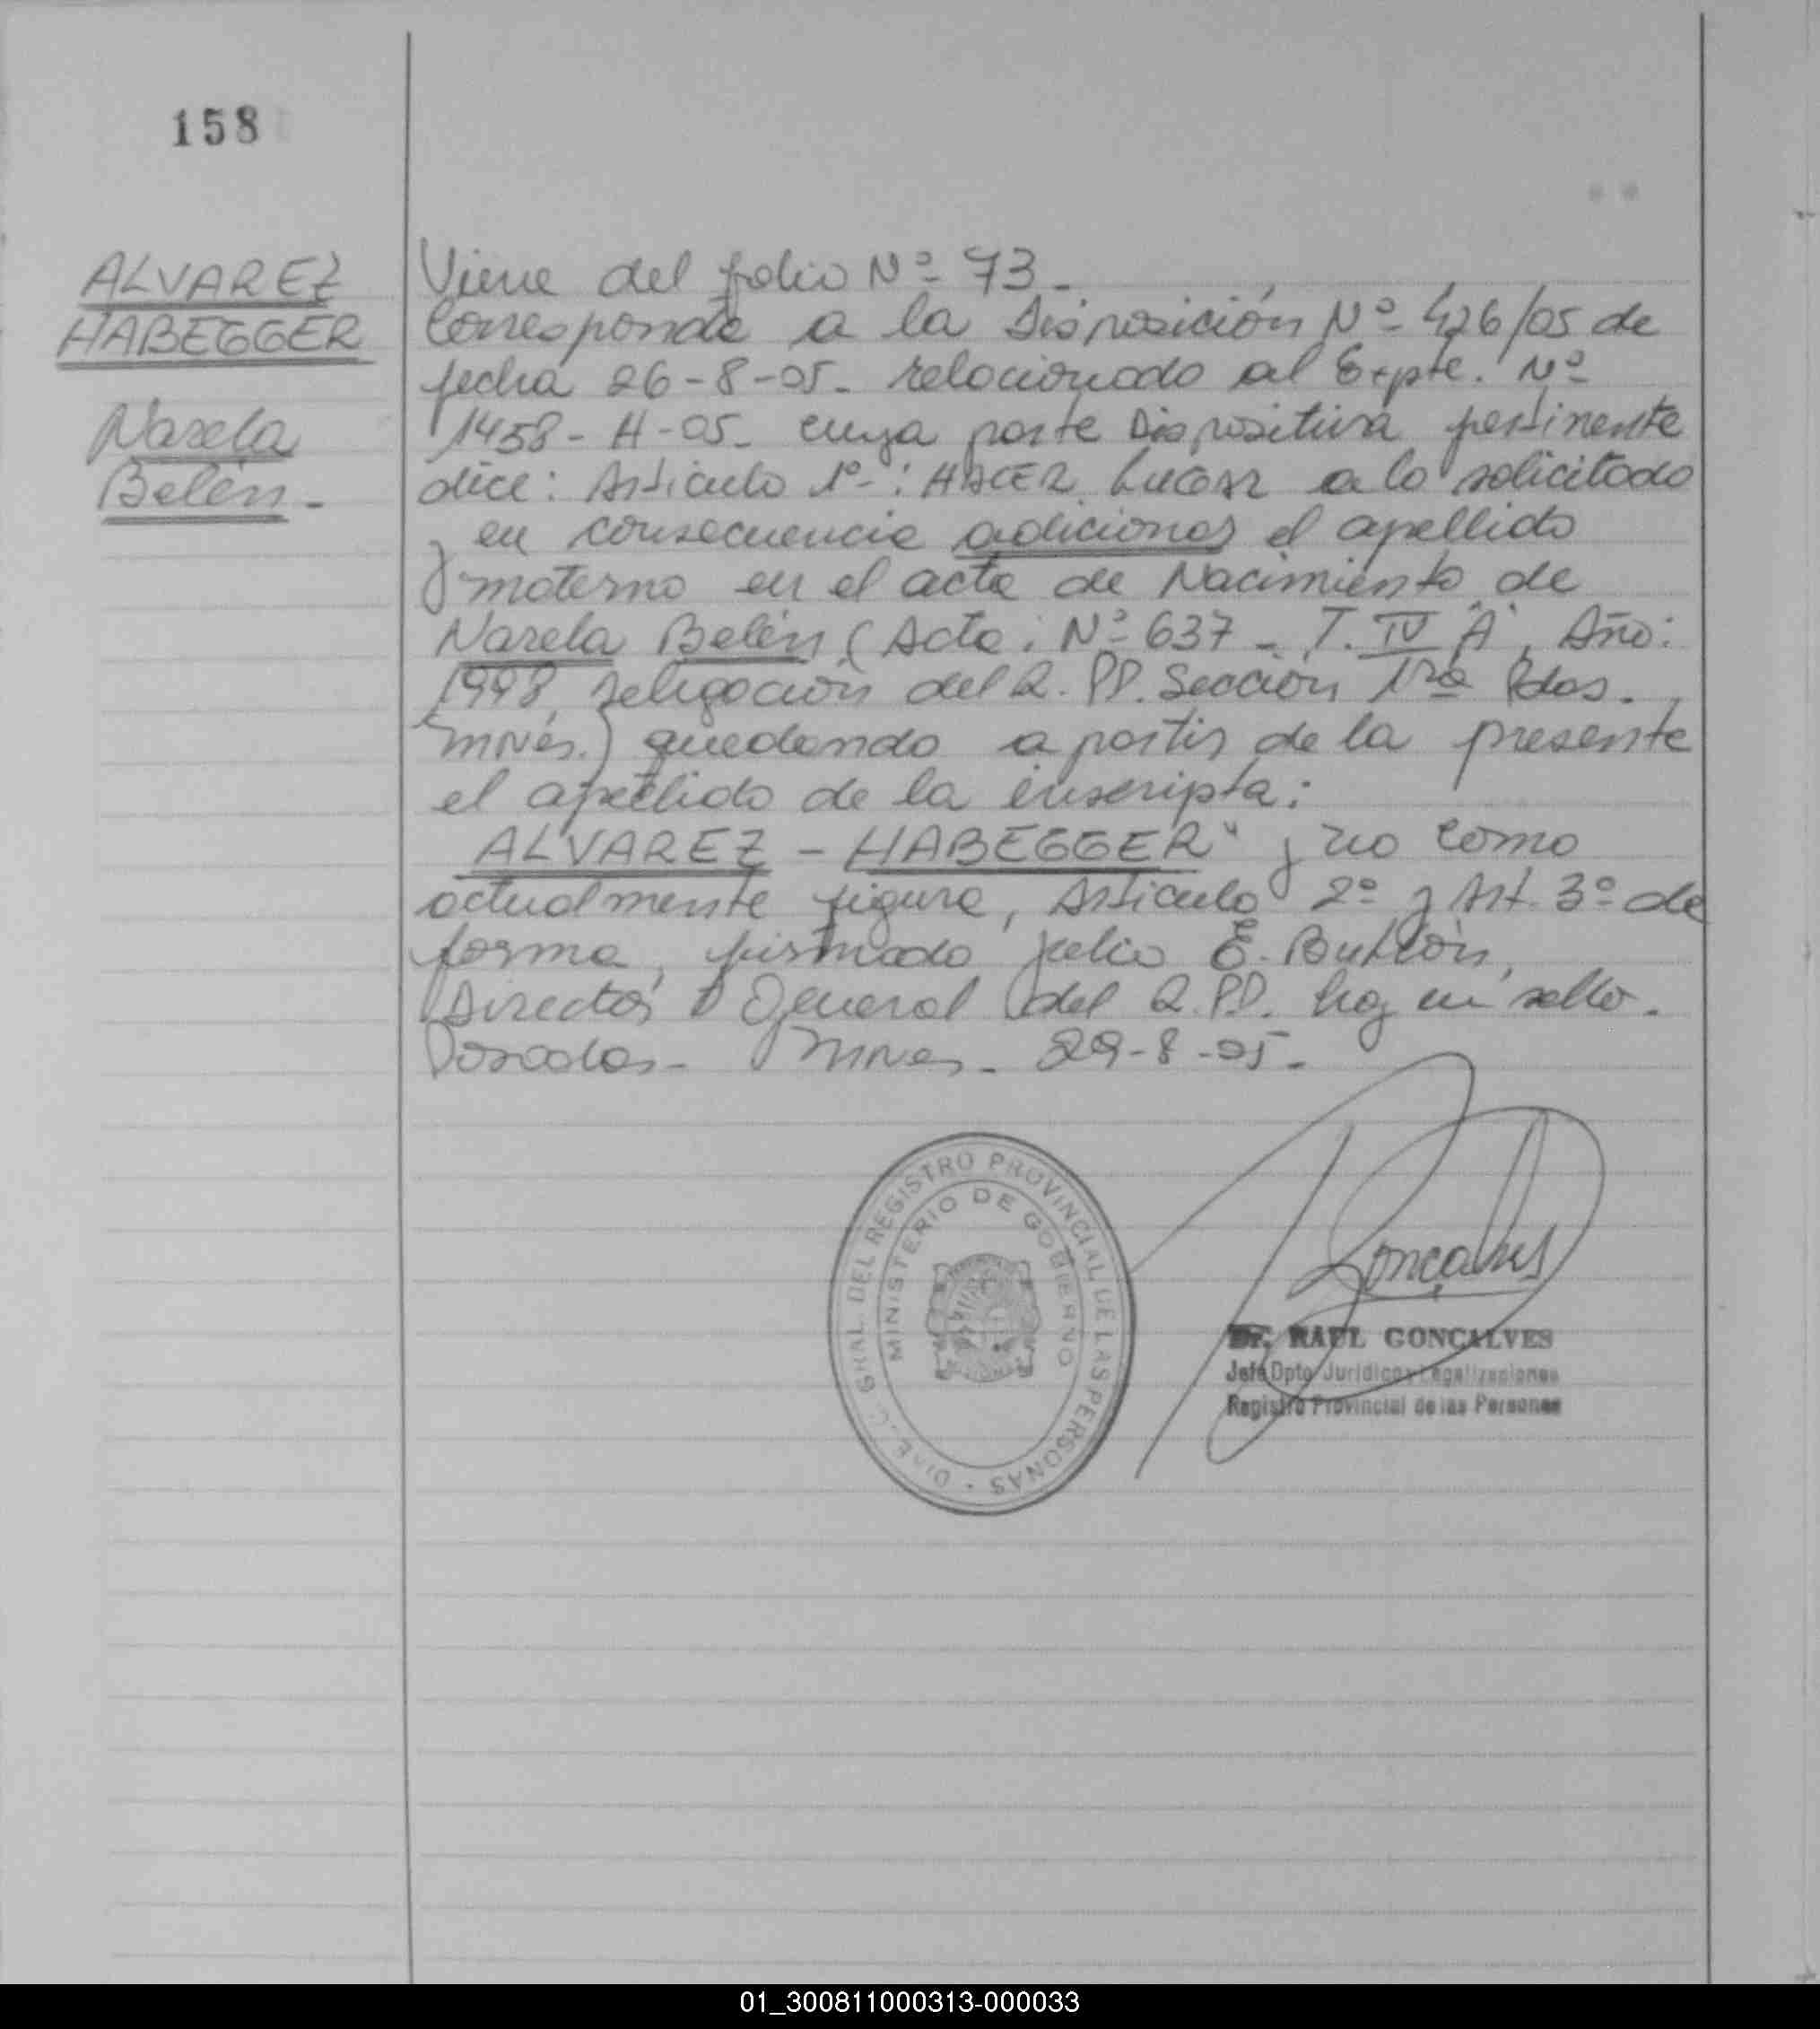 158
ALVAREZ
HABEGGER
Narela
Belén-
Viene del folio Nº 73-
Corresponde a la Disposición Nº 426/05 de
fecha 26-8-05- relacionado al Expte. Nº
1458-H-05- cuya parte Dispositiva pertinente
dice: Articulo 1º-: HACER LUGAR a lo solicitado
y en consecuencia adicionar el apellido
materno en el acta de Nacimiento de
Narela Belén (Acta: Nº 637 - T. IV "A", Año:
1998, delegación del R. PP. Sección 1ra Pdas.
Mnes.) quedando a partir de la presente
el apellido de la inscripta:
ALVAREZ - HABEGGER" y no como
actualmente figura, Articulo 2º y Art. 3º de
forma, firmado Julio E.
Director General del R.PP. hay un sello.
Posadas- Mnes- 29-8-05-
DIREC. GRAL. DEL REGISTRO PROVINCIAL DE LAS PERSONAS
MINISTERIO DE GOBIERNO
Gonçalves
Dr. RAUL GONÇALVES
Jefe Dpto Jurídico y Legalizaciones
Registro Provincial de las Personas
01_300811000313-000033